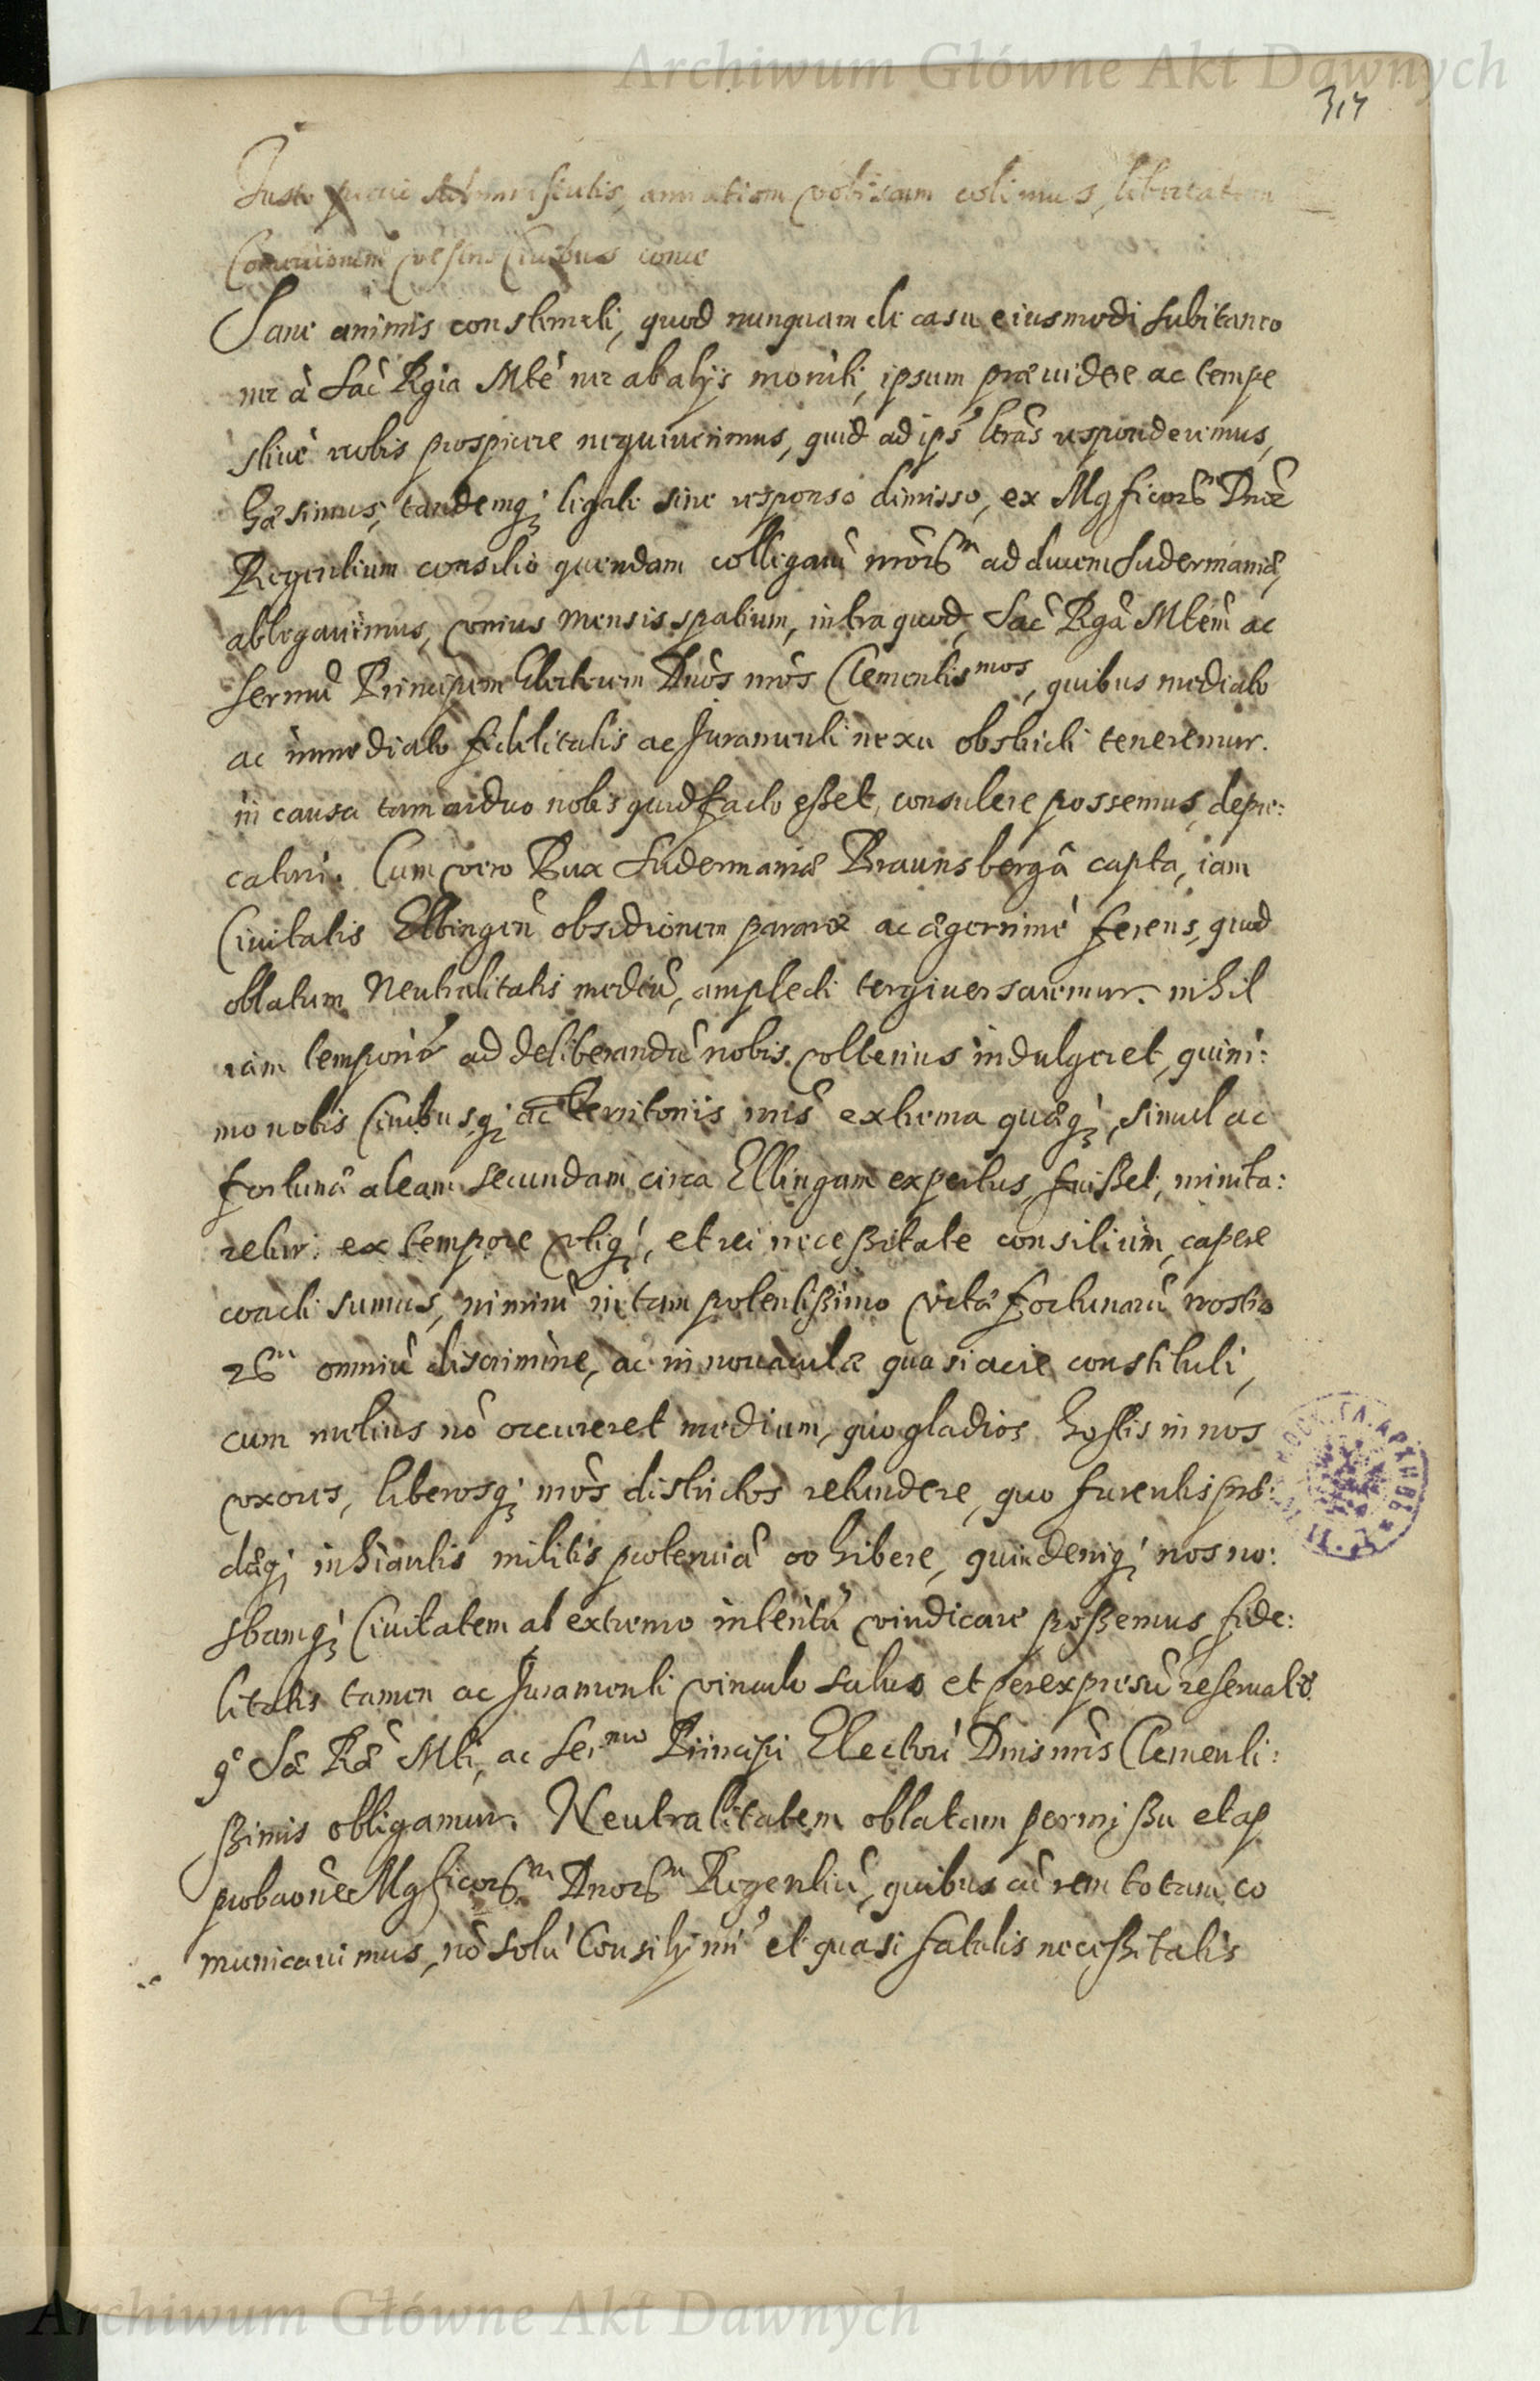 Archiwum Główne Akt Dawnych
317
Juste amicitiam vobiscum colimus, libertatem
vestris Civibus
Sane animis consternati, quod nunquam de casu eiusmodi subitaneo
nec à Sac̃ Rgia Mte nec ab alijs moniti, ipsum præuidere ac tempe
stiuè nobis prospicere nequiuerimus, quid ad ips̃ lrãs responderemus,
hæsimus, tandemq; legato sine responso dimisso, ex Mgficorũ Dnor̃
Regentium consilio quendam collegarũ nr̃orũ ad ducem Sudermaniæ,
ablegauimus, vnius mensis spatium, intra quod, Sac̃ Rgã Mtem̃ ac
Sermũ Principem Electorem Dnõs nr̃os Clementismos, quibus mediato
ac immediato fidelitatis ac Juramenti nexu obstricti teneremur.
in causa tam arduo nobis quid facto eßet, consulere possemus, depre:
caturi. Cum vero Dux Sudermaniæ Braunsbergâ capta, iam
Ciuitatis Elbingeñ obsidionem pararet ac ægerrimè ferens, quod
oblatum Neutralitatis mediũ, amplecti tergiuersaremur. nihil
iam temporis ad deliberandũ nobis vlterius indulgeret, quini:
mo nobis Ciuibusq; ac territorijs nr̃is extrema quæq;, simul ac
fortunæ aleam secundam circa Elbingam expertus fuißet, minita:
retur: ex tempore vtiq;, et rei neceßitate consilium capere
coacti sumus, nimirũ in tam potentißimo vitæ fortunarũ nostra
rũ omniũ discrimine, ac in nouaculæ quasi acie constituti,
cum melius nõ occureret medium, quo gladios hostis in nos
vxores, liberosq; nr̃os districtos retundere, quo furentis præ:
dæq; inhiantis militis proteruiã cohibere, quin deniq; nos no:
stramq; Ciuitatem ab extremo interitu vindicare poßemus, fide:
litatis tamen ac Juramenti vinculo saluo et per expresũ reseruato
qõ Sæ Ræ Mti, ac Sermo Principi Electori Dnis nr̃is Clementi:
ßimis obligamur. Neutralitatem oblatam permißu et ap
probaõne Mgficorum Dnorum Regentiũ, quibus cũ rem totam co
municauimus, nõ solũ Consilij nr̃i et quasi fatalis neceßitatis
Archiwum Główne Akt Dawnych